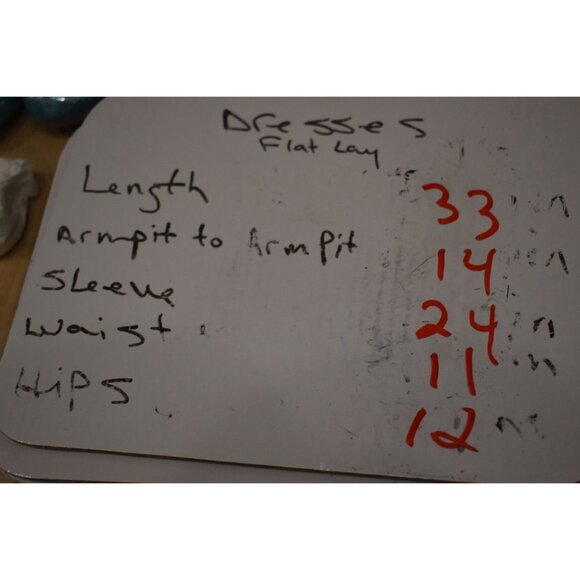 Dresses
Flat Lay
Length 33 in
Armpit to Armpit 14 in
Sleeve 24 in
Waist 11 in
Hips 12 in